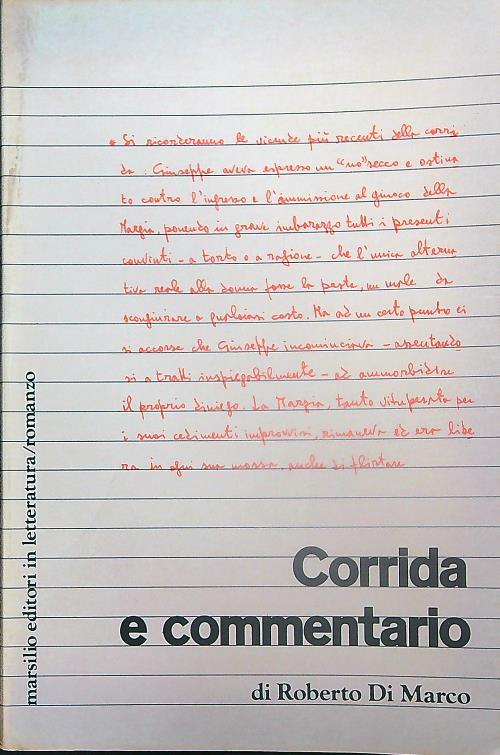 * Si ricorderanno le vicende più recenti della corri
da: Giuseppe aveva espresso un "no" secco e ostina
to contro l'ingresso e l'ammissione al giuoco della
Margia, ponendo in grave imbarazzo tutti i presenti
convinti - a torto o a ragione - che l'unica alterna
tiva reale alla donna fosse la peste, un male da
scongiurare a qualsiasi costo. Ma ad un certo punto ci
si accorse che Giuseppe incominciava - assentando
si a tratti inspiegabilmente - ad ammorbidire
il proprio diniego. La Margia, tanto vituperata per
i suoi cedimenti improvvisi, rimaneva ed era libe
ra in ogni sua mossa, anche di flirtare
Corrida
e commentario
di Roberto Di Marco
marsilio editori in letteratura/romanzo